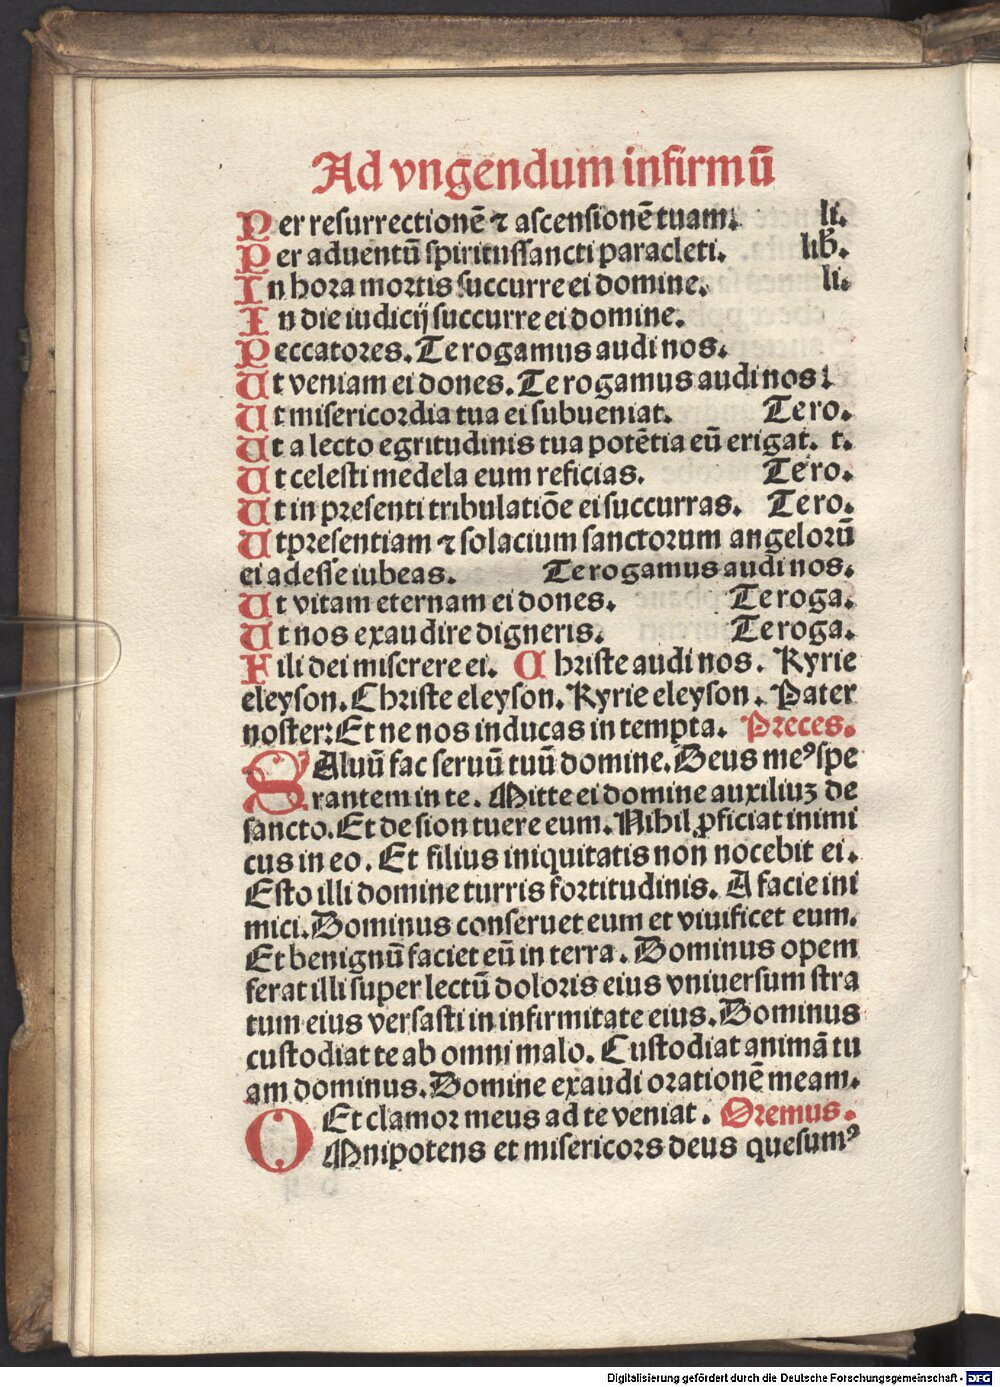 Ad vngendum infirmū
Per resurrectionē ⁊ ascensionē tuam. li.
Per aduentū spiritussancti paracleti. lib.
In hora mortis succurre ei domine. li.
In die iudicij succurre ei domine.
Peccatores. Te rogamus audi nos.
Ut veniam ei dones. Te rogamus audi nos.
Ut misericordia tua ei subueniat. Te ro.
Ut a lecto egritudinis tua potētia eū erigat. t.
Ut celesti medela eum reficias. Te ro.
Ut in presenti tribulatiōe ei succurras. Te ro.
Ut presentiam ⁊ solacium sanctorum angelorū
ei adesse iubeas. Te rogamus audi nos.
Ut vitam eternam ei dones. Te roga.
Ut nos exaudire digneris. Te roga.
Fili dei miscrere ei. Christe audi nos. Kyrie
eleyson. Christe eleyson. Kyrie eleyson. Pater
noster: Et ne nos inducas in tempta. Preces.
SAluū fac seruū tuū domine. Deus meꝰ spe
rantem in te. Mitte ei domine auxiliuꝫ de
sancto. Et de sion tuere eum. Nihil ꝓficiat inimi
cus in eo. Et filius iniquitatis non nocebit ei.
Esto illi domine turris fortitudinis. A facie ini
mici. Dominus conseruet eum et viuificet eum.
Et benignū faciet eū in terra. Dominus opem
ferat illi super lectū doloris eius vniuersum stra
tum eius versasti in infirmitate eius. Dominus
custodiat te ab omni malo. Custodiat animā tu
am dominus. Domine exaudi orationē meam.
Et clamor meus ad te veniat. Oremus.
OMnipotens et misericors deus quesumꝰ
Digitalisierung gefördert durch die Deutsche Forschungsgemeinschaft - DFG